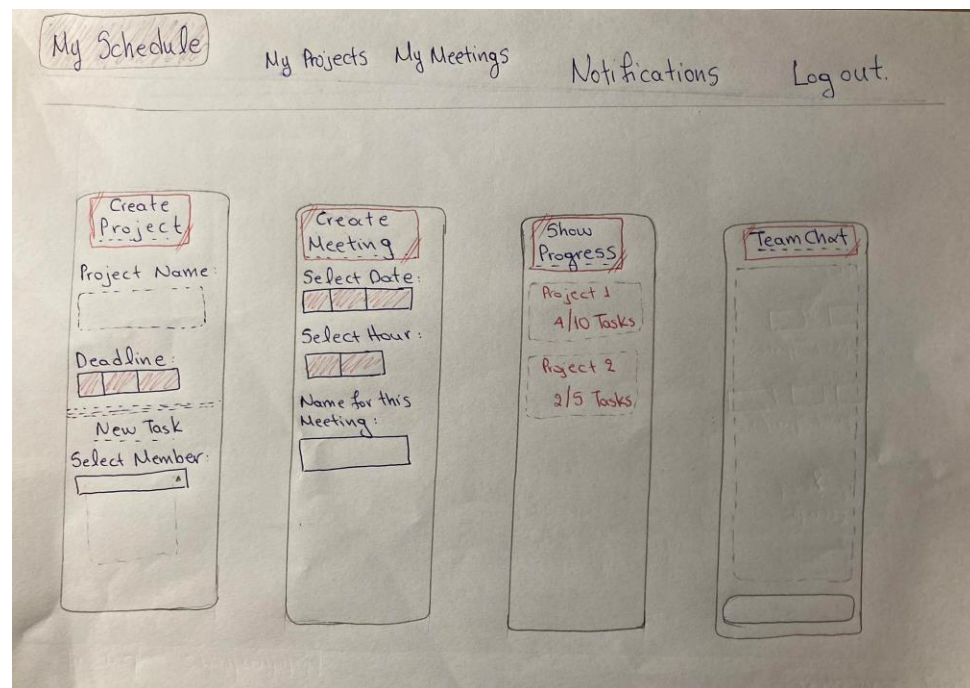 My Schedule
My Projects
My Meetings
Notifications
Log out.
Create
Project
Project Name:
Deadline:
New Task
Select Member:
Create
Meeting
Select Date:
Select Hour:
Name for this
Meeting:
Show
Progress
Project 1
4/10 Tasks
Project 2
2/5 Tasks
Team Chat